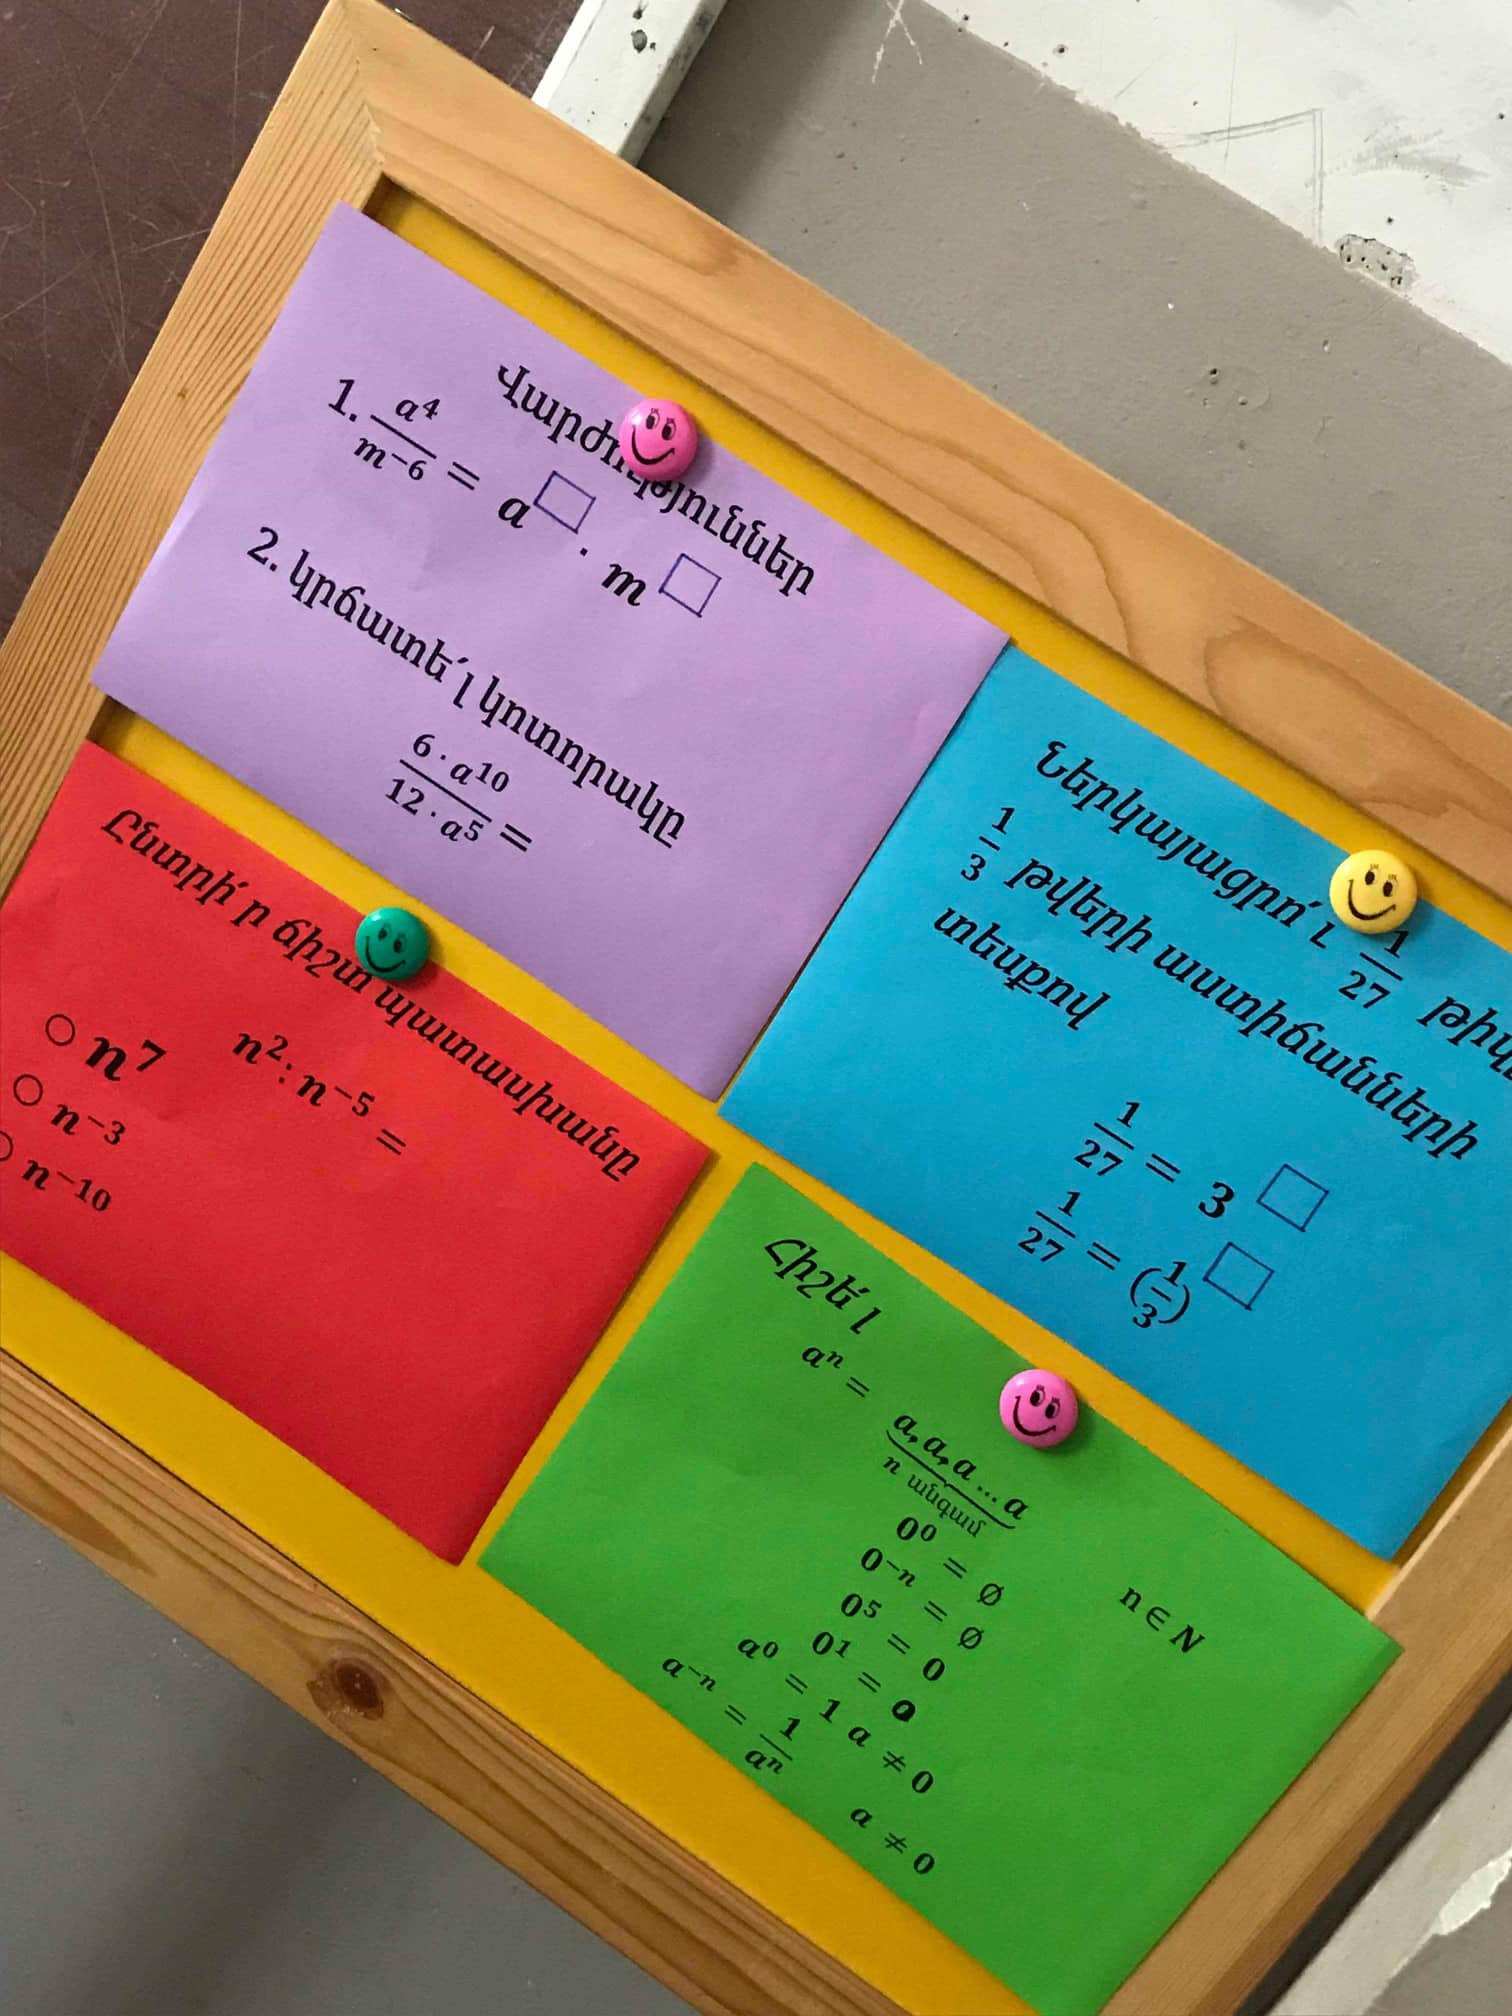 Վարժություններ
1. a⁴/m⁻⁶ = a□ · m□
2. կրճատե՛լ կոտորակը
6·a¹⁰/12·a⁵ =
Ներկայացրո՛ւ 1/27
1/3 թվերի աստիճանների
տեսքով
1/27 = 3□
1/27 = (1/3)□
Ընտրի՛ր ճիշտ պատասխանը
n²:n⁻⁵ =
○ n⁷
○ n⁻³
○ n⁻¹⁰
Հիշե՛լ
aⁿ = a,a,a...a
n անգամ
0⁰ = ∅
0⁻ⁿ = ∅ n∈N
0⁵ = 0
0¹ = 0
a⁰ = 1 a ≠ 0
a⁻ⁿ = 1/aⁿ a ≠ 0